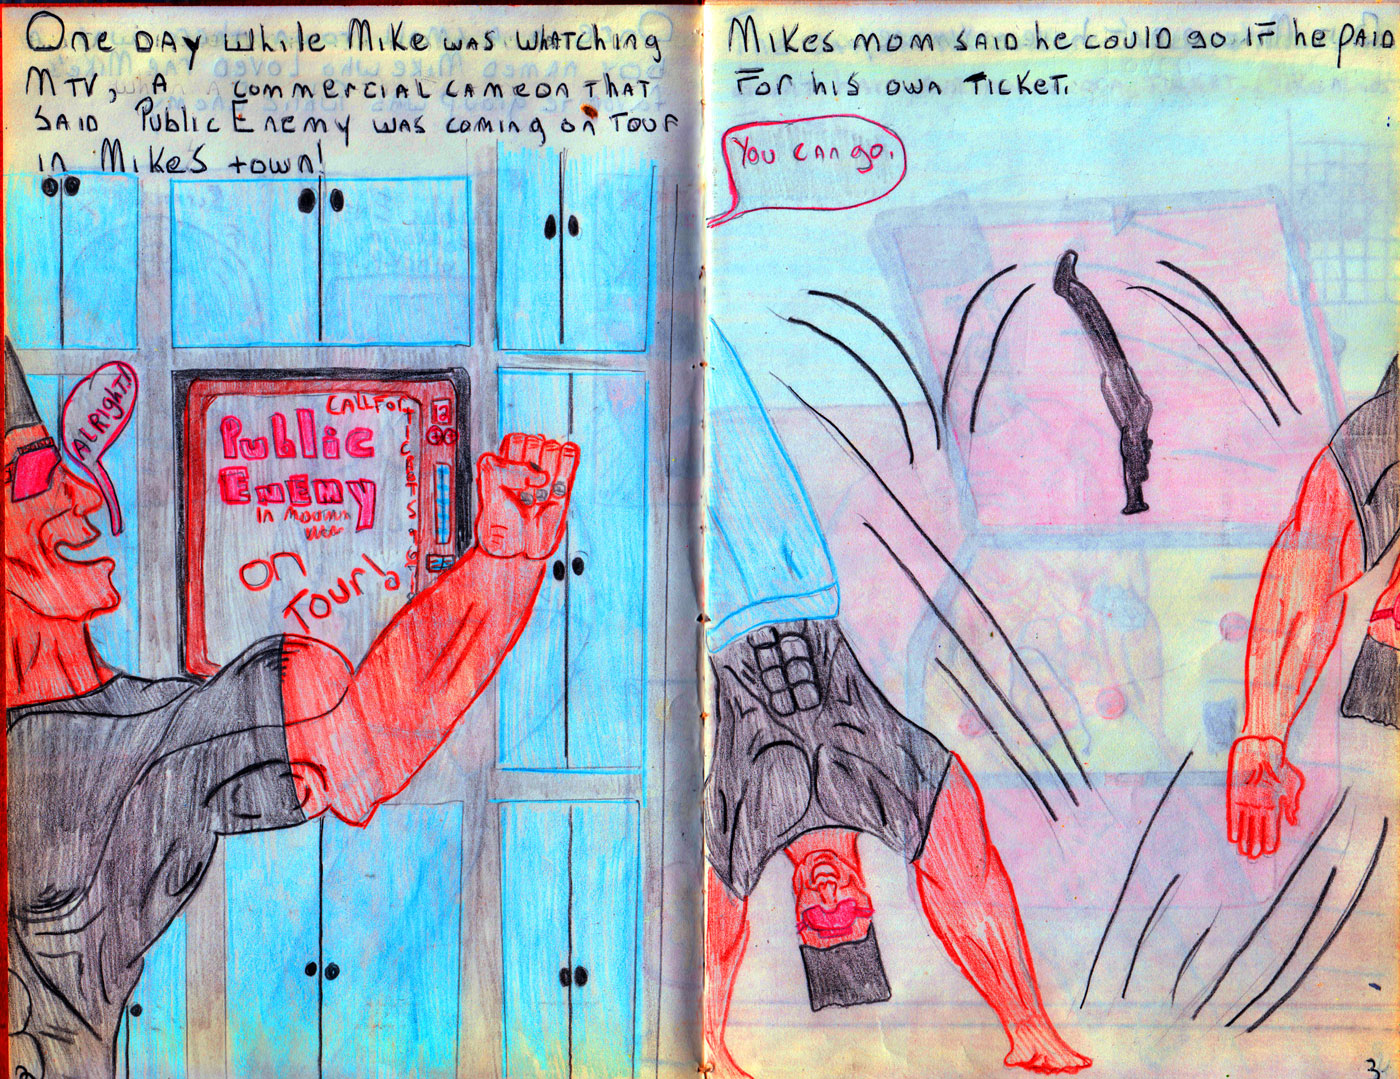 One DAy while Mike was whatching
MTV, A commercial came on that
said Public Enemy was coming on tour
in Mikes town!
ALRight!
CALL FOR
TICKETS
Public
Enemy
in
on
Tour!
Mikes mom said he could go if he paid
For his own Ticket.
You can go.
3